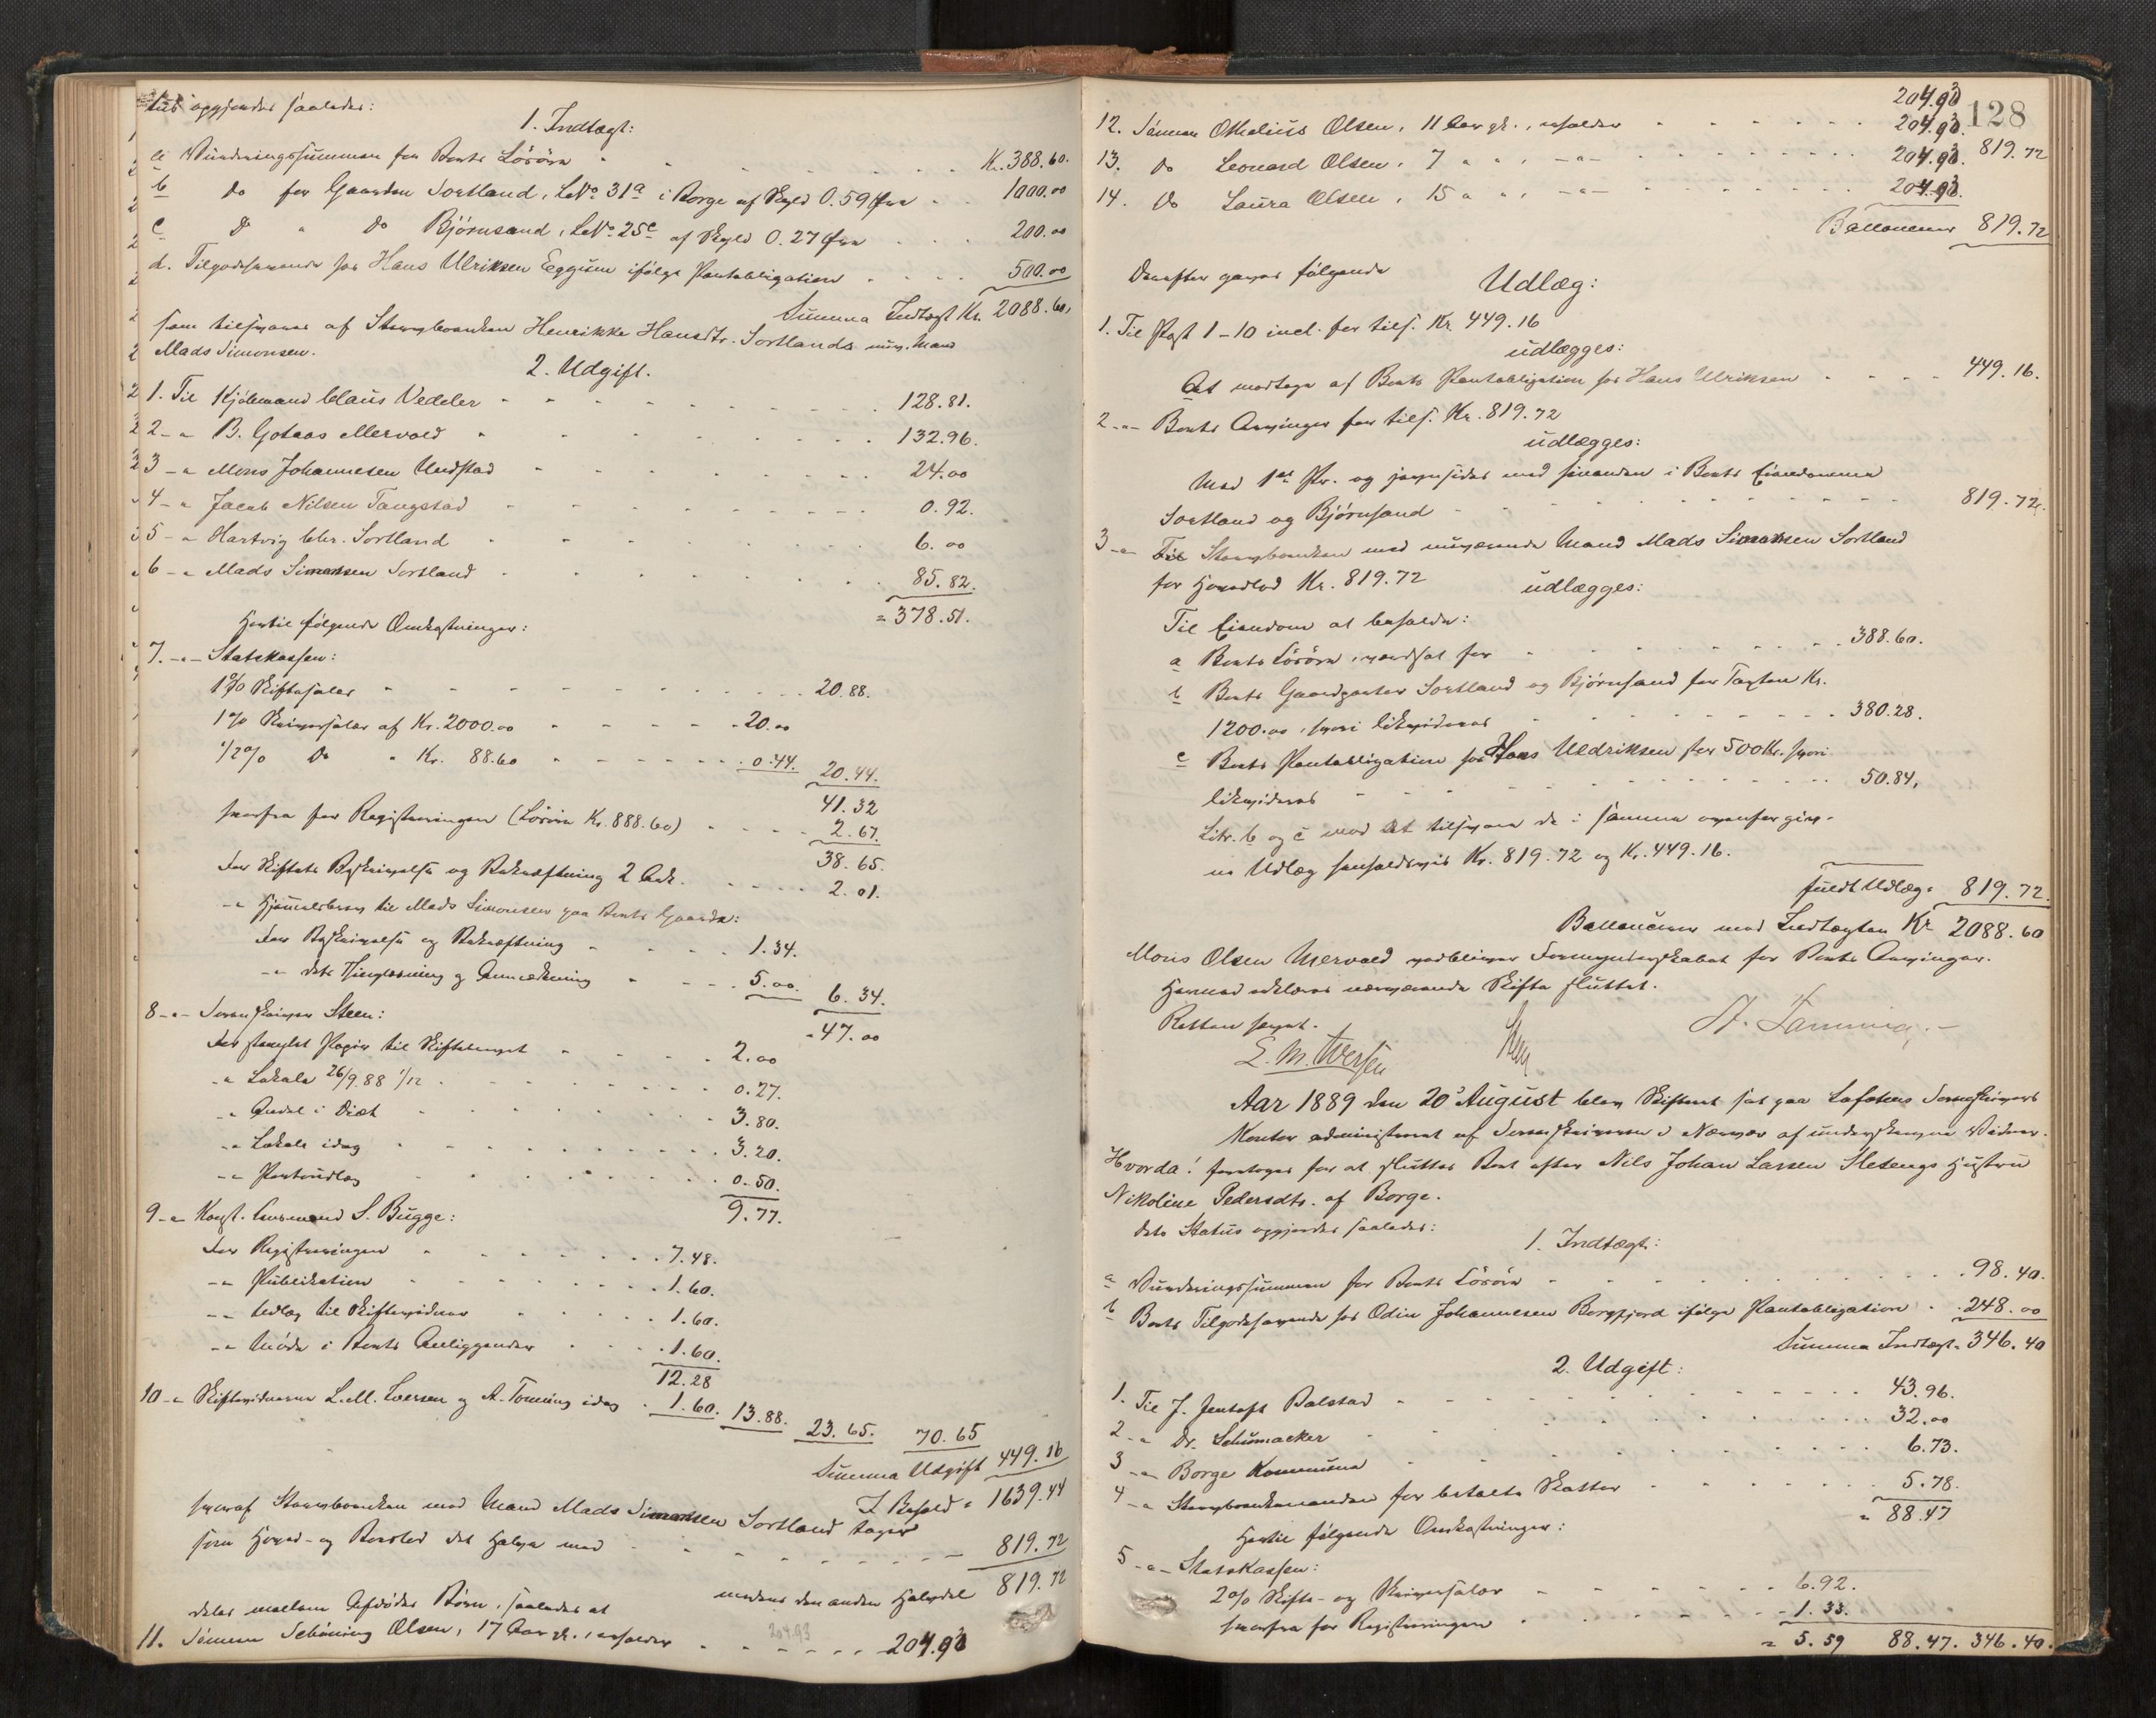 tus opgjordes saaledes:
1. Indtægt:
a Vurderingssummen for Boets Lösöre Kr. 388.60.
b do for Gaarden Sortland, L.No 31a i Borge af Skyld 0.59 Øre 1000.00
c do " do Björnsand, L.No 25c af Skyld 0.27 Øre 200.00
d. Tilgodehavende hos Hans Ulriksen Eggum ifölge Pantobligation 500.00
Summa Indtægt Kr. 2088.60,
som tilsvares af Stervboenken Henrikke Hansdtr. Sortlands nuv. Mand
Mads Simonsen.
2. Udgift.
1. Til Kjöbmand Claus Vedeler 128.81.
2 - " B. Gotaas Mervold 132.96.
3 - " Mons Johannesen Undstad 24.00
4 - " Jacob Nilsen Tangstad 0.92.
5 - " Hartvig Chr. Sortland 6.00
6 - " Mads Simonsen Sortland 85.82.
= 378.51.
Hertil fölgende Omkostninger:
7. - " - Statskassen:
1% Skiftesalær 20.88.
1% Skriversalær af Kr. 2000.00 20.00
1/2% Do " Kr. 88.60 0.44. 20.44.
41.32
herfra for Registreringen (Lösöre Kr. 888.60) 2.67.
38.65.
For Skiftets Beskrivelse og Bekræftning 2 Ark. 2.01.
- " Hjemmelsbrev til Mads Simonsen paa Boets Gaarde:
For Beskrivelse og Bekræftning 1.34.
- " dets Thinglæsning og Anmærkning 5.00. 6.34.
= 47.00
8 - " - Sorenskriver Steen:
For stemplet Papir til Skiftebrevet 2.00
- " Lokale 26/9.88 1/12 0.27.
- " Andel i Diæt 3.80.
- " Lokale idag 3.20.
- " Portoudlæg 0.50.
9.77.
9 - " Konst. Lensmand S. Bugge:
For Registreringen 7.48.
- " Publikation 1.60.
- " Indlæg til Skiftevidner 1.60.
- " Möde i Boets Anliggender 1.60.
12.28
10 - " Skiftevidnerne L. M. Iversen og A. Tonning idag 1.60. 13.88. 23.65. 70.65
Summa Udgift 449.16
I Behold = 1639.44
hvoraf Stervboenken med Mand Mads Simonsen Sortland tager
som Hoved- og Boeslod det Halve med 819.72
medens den anden Halvdel 819.72
deles mellem Afdödes Börn, saaledes at
204.93
11. Sönnen Schöning Olsen, 17 Aar gl., erholder 204.93
128
204.93
12. Sönnen Othelius Olsen, 11 Aar gl., erholder 204.93.
13. Do Leonard Olsen, 7 " " , - " - 204.93. 819.72
14. Do Laura Olsen, 15 " " , - " - 204.93.
Ballancerer 819.72
Derefter gaves fölgende
Udlæg:
1. Til Post 1-10 incl. for tils. Kr. 449.16
udlægges:
At modtage af Boets Pantobligation hos Hans Ulriksen 449.16.
2 - " - Boets Arvinger for tils. Kr. 819.72
udlægges:
Med 1ste Pr. og jevnsides med hinanden i Boets Eiendomme
Sortland og Björnsand 819.72.
3 - " - Til Stervboenken med nuværende Mand Mads Simonsen Sortland
for Hovedlod Kr. 819.72 udlægges:
Til Eiendom at beholde:
a Boets Lösöre, værdsat for 388.60.
b Boets Gaardparter Sortland og Björnsand for Taxten Kr.
1200.00, hvori likvideres 380.28.
c Boets Pantobligation hos Hans Uldriksen stor 500 Kr. hvori
likvideres 50.84,
Litr. b og c mod at tilsvare de i samme ovenfor giv-
ne Udlæg henholdsvis Kr. 819.72 og Kr. 449.16.
fuldt Udlæg = 819.72.
Ballancerer med Indtægten Kr 2088.60
Mons Olsen Mervold vedbliver Formynderskabet for Boets Arvinger.
Hermed erklæres nærværende Skifte sluttet.
Retten hævet.
L. M. Iversen Steen A. Tonning. -
Aar 1889 den 20de August blev Skifteret sat paa Lofotens Sorenskriveris
Kontor administreret af Sorenskriveren i Nærvær af underskrevne Vidner.
Hvorda! foretoges for at sluttes Boet efter Nils Johan Larsen Sletengs Hustru
Nikoline Pedersdtr. af Borge.
dets Status opgjordes saaledes:
1. Indtægt:
a Vurderingssummen for Boets Lösöre 98.40.
b Boets Tilgodehavende hos Odin Johannesen Borgfjord ifölge Pantobligation 248.00
Summa Indtægt = 346.40
2. Udgift:
1. Til J. Jentoft Balstad 43.96.
2 - " Dr. Schumacker 32.00
3 - " - Borge Kommune 6.73.
4 - " Stervboenkemanden for betalte Skatter 5.78.
= 88.47
Hertil fölgende Omkostninger:
5 - " - Statskassen:
2% Skifte- og Skriversalær 6.92.
herfra for Registreringen - 1.33.
= 5.59 88.47. 346.40.